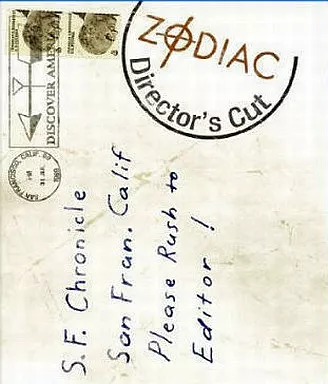 ZODIAC
Director's Cut
DISCOVER AMERICA
SAN FRANCISCO, CALIF.
S.F. Chronicle
San Fran. Calif
Please Rush to
Editor!